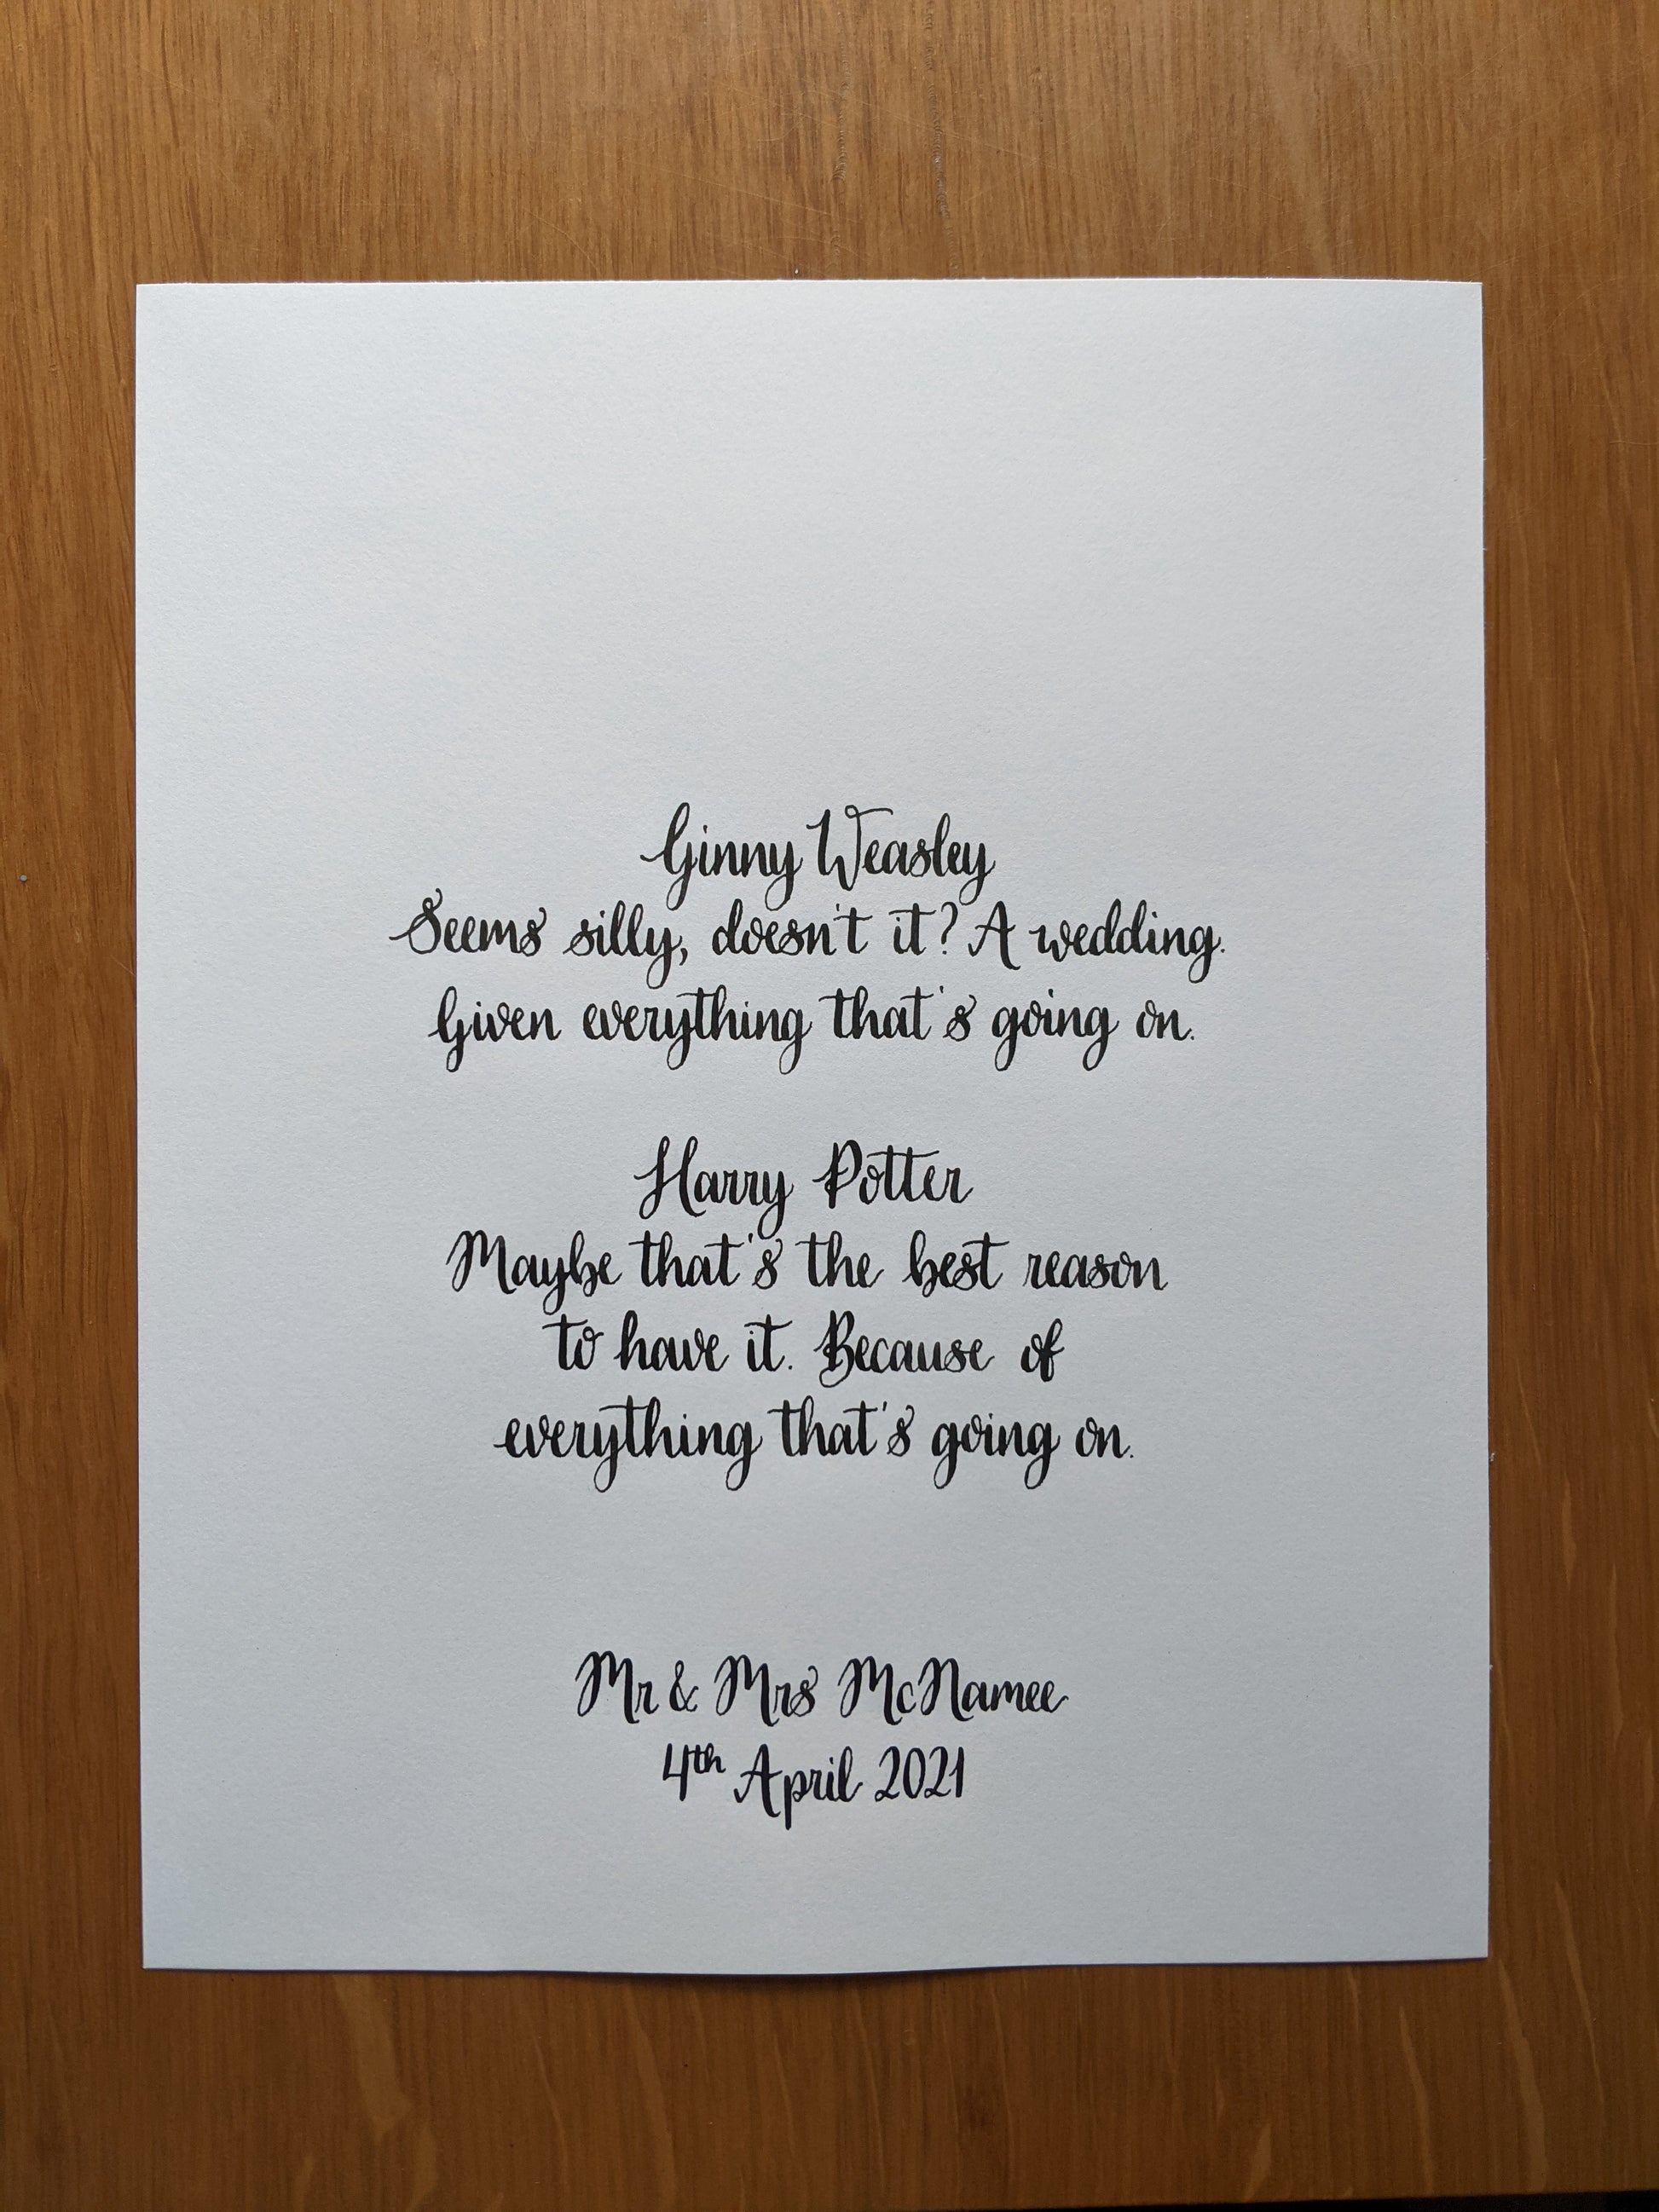 Ginny Weasley
Seems silly, doesn't it? A wedding.
Given everything that's going on.
Harry Potter
Maybe that's the best reason
to have it. Because of
everything that's going on.
Mr & Mrs McNamee
4th April 2021